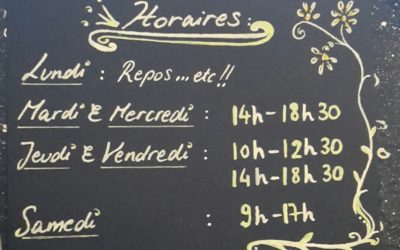 Horaires:
Lundi : Repos...etc!!
Mardi & Mercredi : 14h-18h30
Jeudi & Vendredi : 10h-12h30
14h-18h30
Samedi : 9h-17h